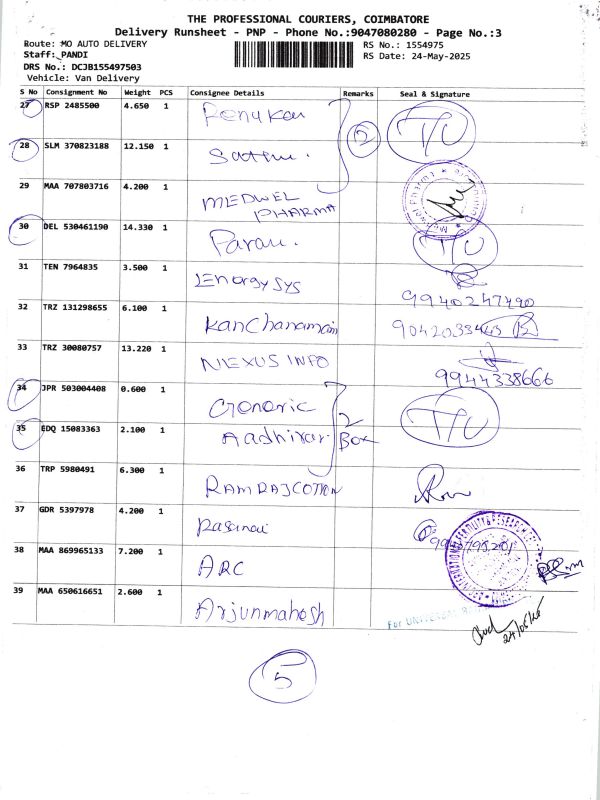 THE PROFESSIONAL COURIERS, COIMBATORE
Delivery Runsheet - PNP - Phone No.:9047080280 - Page No.:3
Route: MO AUTO DELIVERY RS No.: 1554975
Staff: PANDI RS Date: 24-May-2025
DRS No.: DCJB155497503
Vehicle: Van Delivery
S No Consignment No Weight PCS Consignee Details Remarks Seal & Signature
27 RSP 2485500 4.650 1 Renukau 2 T/U
28 SLM 370823188 12.150 1
29 MAA 707803716 4.200 1 MEDWEL PHARMA
30 DEL 530461190 14.330 1 T/U
31 TEN 7964835 3.500 1 Energy sys 9940247490
32 TRZ 131298655 6.100 1 Kanchanamani
33 TRZ 30080757 13.220 1 NEXUS INFO 9944338666
34 JPR 503004408 0.600 1 Generic 2 Box T/U
35 EDQ 15083363 2.100 1
36 TRP 5980491 6.300 1 RAMRAJCOTTON
37 GDR 5397978 4.200 1
38 MAA 869965133 7.200 1 ARC
39 MAA 650616651 2.600 1 Arjunmahesh
24/05/25
5